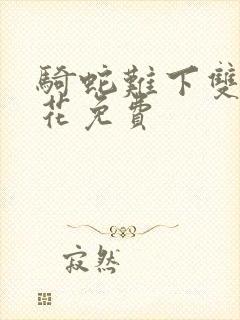 騎蛇難下雙
花免費
寂然